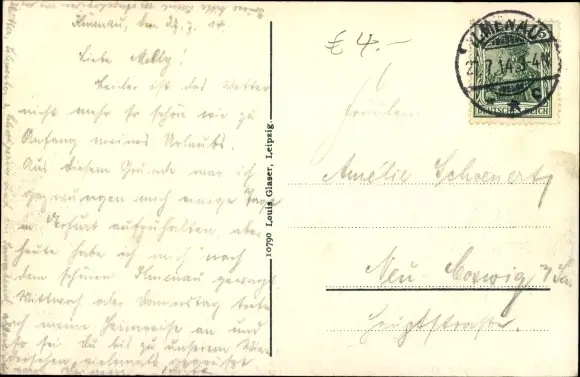 Ilmenau, den 27.7.14
Liebe Melly!
Leider ist das Wetter
nicht mehr so schön wie zu
Anfang meines Urlaubs.
Aus diesem Grunde war ich
gezwungen mich einige Tage
in Erfurt aufzuhalten, aber
heute habe ich mich nach
dem schönen Ilmenau gewagt
Mittwoch oder Donnerstag trete
ich meine Heimreise an und
so sei du bis zu unserem Wie
dersehen vielmals gegrüsst
10790 Louis Glaser, Leipzig.
£ 4.-
ILMENAU
27.7.14.3-4N
* c
DEUTSCHES REICH
Fräulein
Amélie Schoenert
Neu-Coswig i/Sa
Hauptstraße.